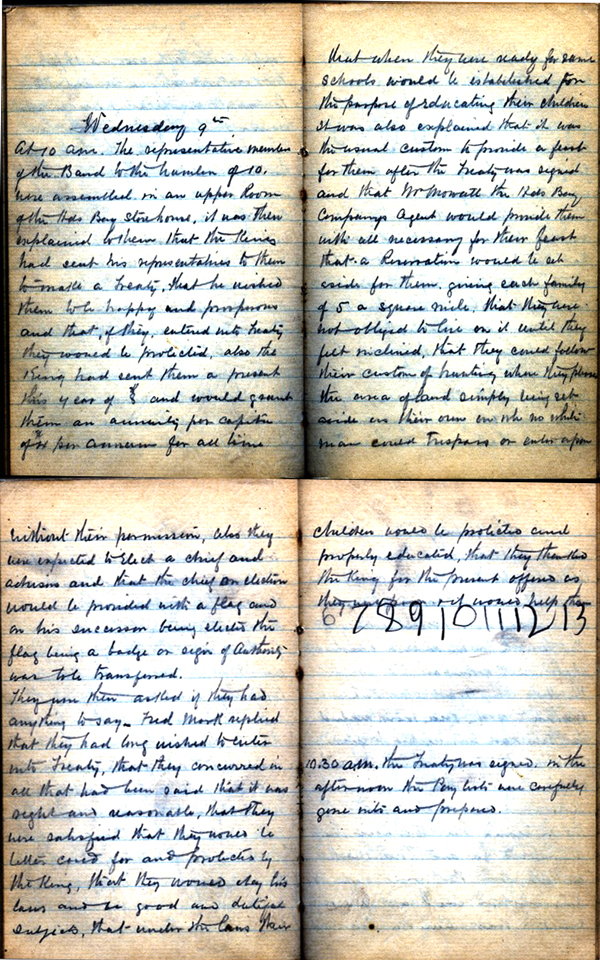 Wednesday 9th
At 10 am. The representative members
of the Band to the number of 10.
were assembled in an upper Room
of the Hds Bay Storehouse, it was then
explained to them that the King
had sent his representatives to them
to make a Treaty, that he wished
them to be happy and prosperous
and that if they entered into Treaty
they would be protected, also the
King had sent them a present
this year of $8 and would grant
them an annuity per capita
of $4 per annum for all time
that when they were ready for same
schools would be established for
the purpose of educating their children
it was also explained that it was
the usual custom to provide a feast
for them after the Treaty was signed
and that Mr Mowatt the Hds Bay
Companys Agent would provide them
with all necessary for their feast
that a Reservation would be set
aside for them giving each family
of 5 a square mile, that they were
not obliged to live on it until they
felt inclined, that they could follow
their custom of hunting when they please
the area of land simply being set
aside as their own on wh no white
man could trespass or enter upon
without their permission, also they
were expected to elect a chief and
and that the chief on election
would be provided with a flag and
on his successor being elected the
flag being a badge or sign of Authority
was to be transferred.
They were then asked if they had
anything to say - Fred Mark replied
that they had long wished to enter
into Treaty, that they concurred in
all that had been said that it was
right and reasonable, that they
were satisfied that they would be
better cared for and protected by
the King, that they would obey his
laws and be good and dutiful
subjects, that under the laws their
children would be protected and
properly educated, that they thanked
the King for the present offered as
they were poor & it would help them
6 7 8 9 10 11 12 13
10.30 a.m. the Treaty was signed. in the
afternoon the Pay lists were carefully
gone into and prepared.